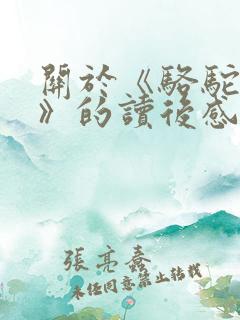 關於《駱駝
》的讀後感
張亮春
未經同意禁止轉載